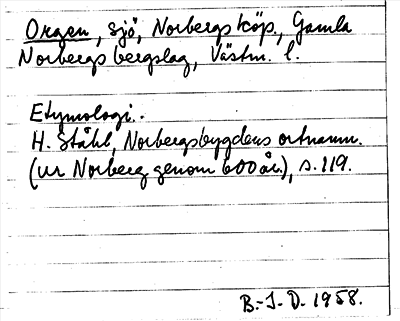 Orgen, sjö, Norbergs köp., Gamla
Norbergs bergslag, Västm. l.
Etymologi.
H. Ståhl, Norbergsbygdens ortnamn.
(ur Norberg genom 600 år), s. 119.
B.-I. D. 1958.